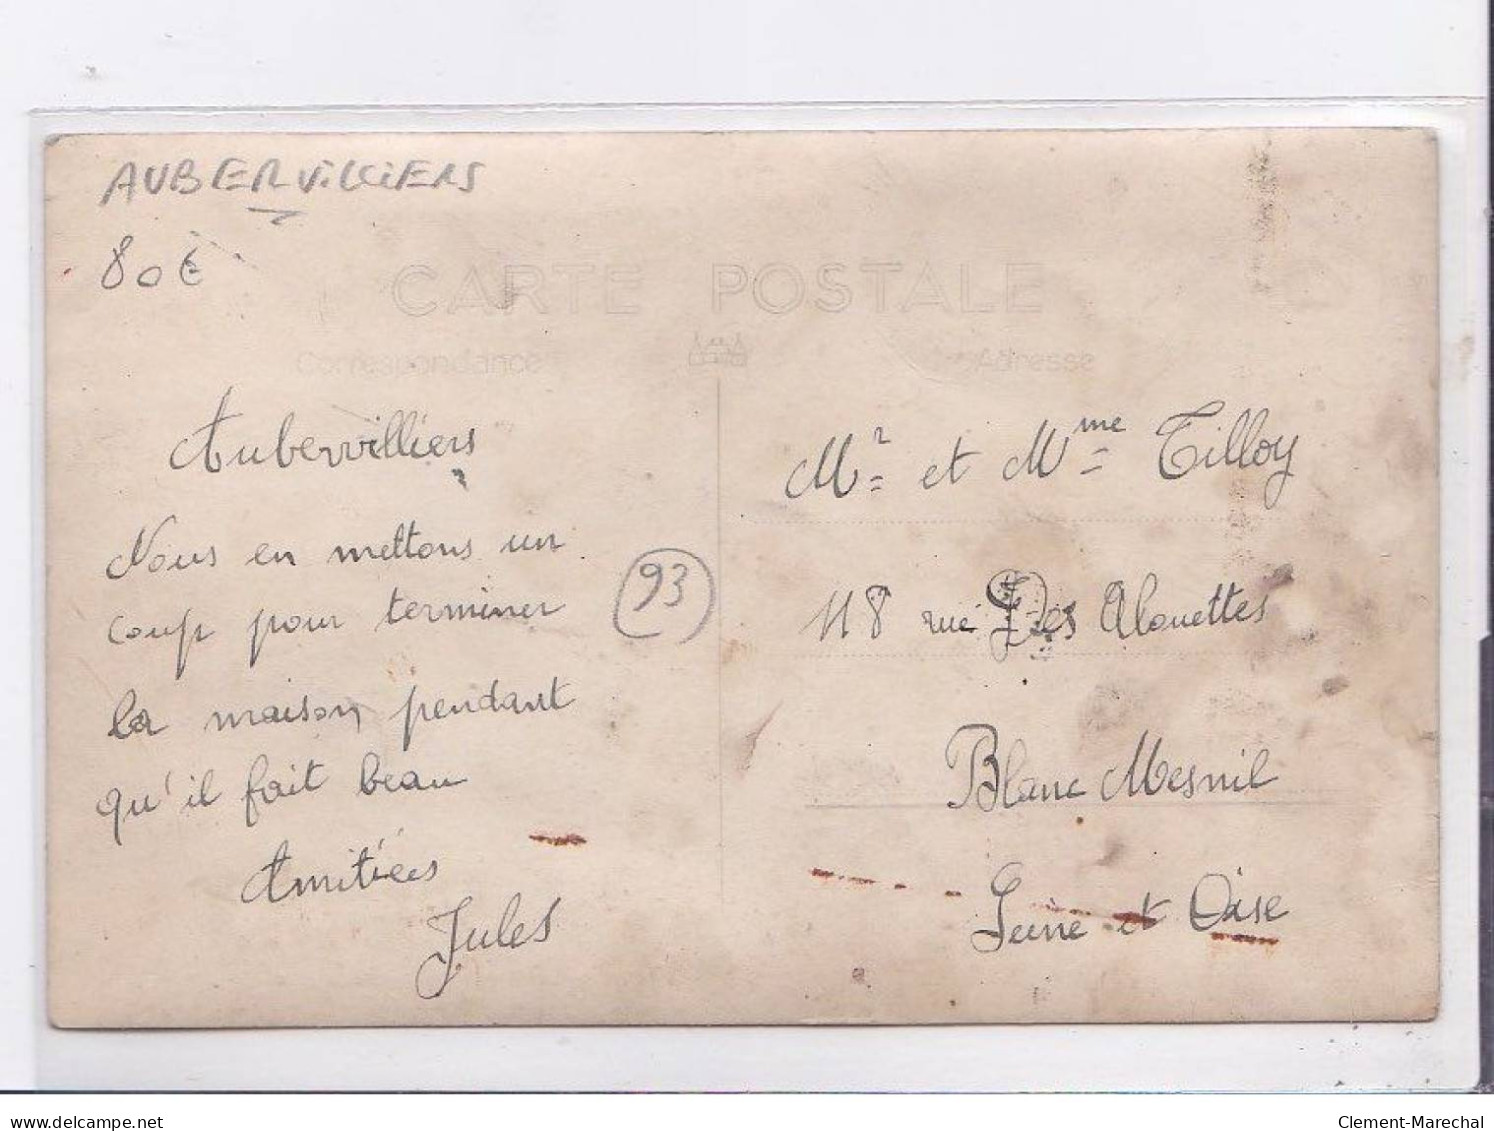 AUBERVILLIERS
80€
CARTE POSTALE
Correspondance
Adresse
Aubervilliers
Nous en mettons un
coup pour terminer
la maison, pendant
qu'il fait beau
Amitiées
Jules
93
Mr et Mme Tilloy
118 rue Des Alouettes
Blanc Mesnil
Seine et Oise
delcampe.net
Clement-Marechal